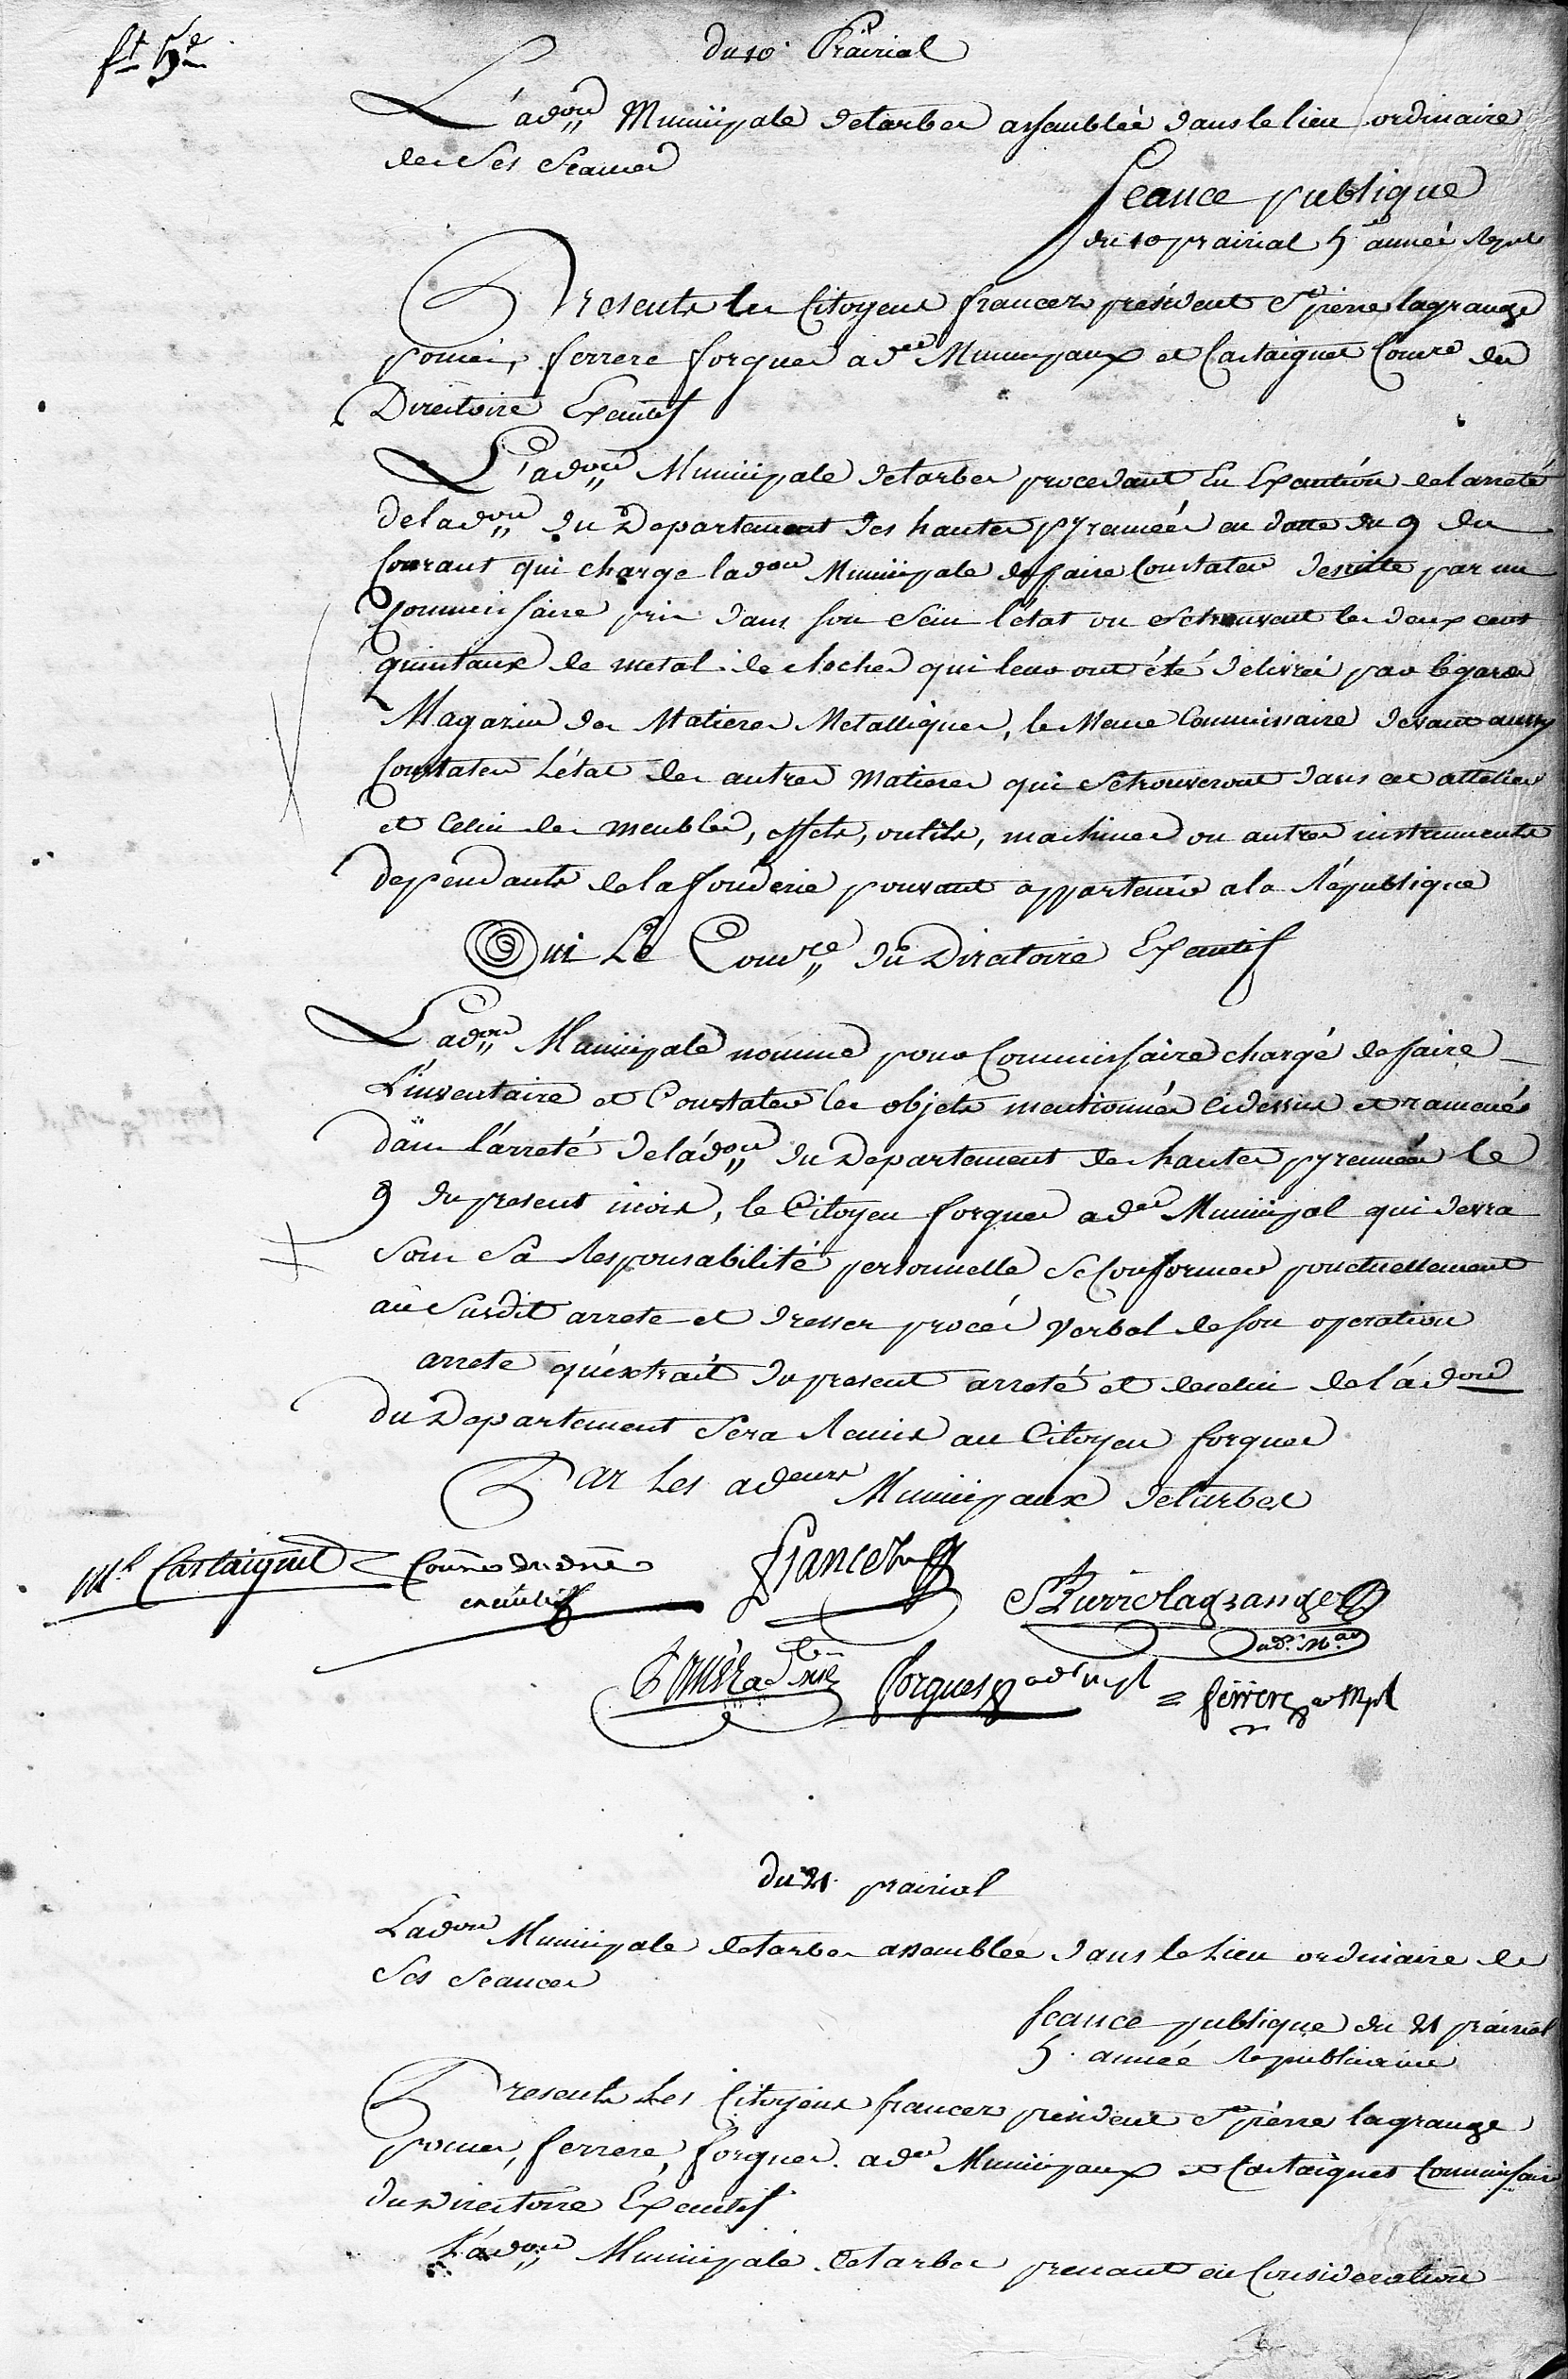 du 10 Prairial
L'adon Municipale de tarbes assemblée dans le lieu ordinaire
de Ses Seances
Seance publique
du 10 prairial 5e année Repub
Presents les Citoyens francez président St pierre lagrange
pomés, ferrere forgues adrs Municipaux et Castaignet Comre du
Directoire Executif
L'adon Municipale de tarbes procedant En Execution de l'arreté
de l'adon du Departement des hautes pyrennées en datte du 9 du
Courant qui charge l'adon Municipale de faire Constater de suitte par un
Commissaire pris dans son Sein l'état ou Se trouvent les deux cent
quintaux de metal de cloches qui leur ont été delivrés par le garde
Magazin des Matieres Metalliques, le Meme Commissaire devant aussy
Constater L'état des autres Matieres qui Se trouveront dans cet attelier
et Celui des meubles, effets, outils, machines ou autres instruments
dependants de la fonderie pouvant appartenir a la République
Oui Le Comre du Directoire Executif
L'adon Municipale nomme pour Commissaire chargé de faire
L'inventaire et Constater les objets mentionnés ci dessus et ramenés
dans l'arreté de l'adon du Departement des hautes pyrennées le
9 du present mois, le Citoyen forgues adr Municipal qui devra
Sous Sa Responsabilité personnelle Se Conformer ponctuellement
au Susdit arreté et dresser procés Verbal de son operation
arrete qu'extrait du present arreté et de celui de l'adon
du Departement Sera Remis au Citoyen forgues
Par Les adeurs Municipaux de tarbes
Castaignet Comre du dre
executif
francez
St Pierre lagrange
ad. Mal
forgues adr mpl = ferrere a Mpl
du 21 prairial
L'adon Municipale de tarbes assemblée dans le Lieu ordinaire de
Ses Seances
Seance publique du 21 prairial
5. année Republicaine
Presents Les Citoyens francez président St pierre lagrange
pomes, ferrere, forgues adrs Municipaux et Castaignet Commissaire
du Directoire Executif
L'adon Municipale de tarbes prenant en Consideration